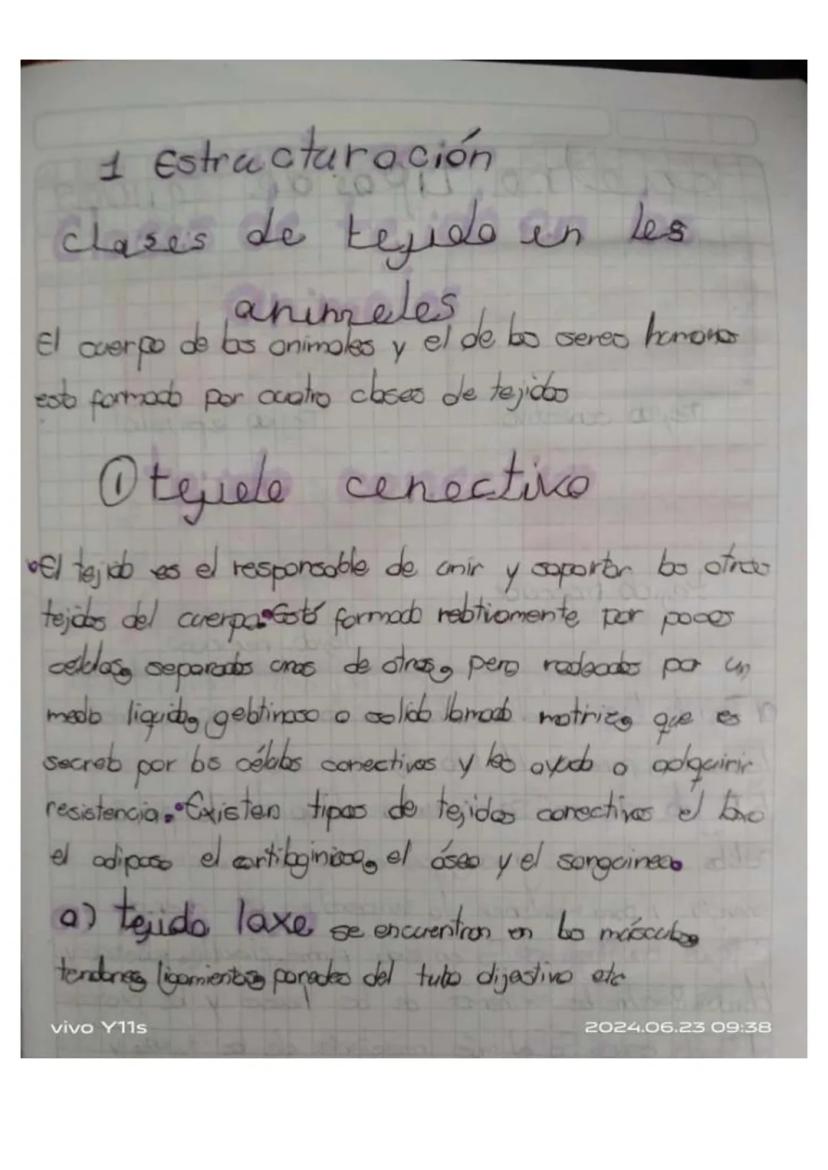 1 Estructuración
clases de tejido en les
animeles
El cuerpo de los animales y el de los seres humanos
esta formado por cuatro clases de tejidos
① tejiele cenectivo
El tejido es el responsable de unir y soportar los otros
tejidos del cuerpo. Está formado relativamente por pocas
celulas, separadas unas de otras, pero rodeadas por un
medio liquido, gelatinoso o solido llamado matrices que es
secreta por las células conectivas y les ayuda a adquirir
resistencia. Existen tipos de tejidos conectivos el laxo
el adiposo el cartilaginoso, el óseo y el sanguineo.
a) tejido laxe se encuentran en los músculos,
tendones, ligamientos, paredes del tubo dijestivo etc
vivo Y11s
2024.06.23 09:38